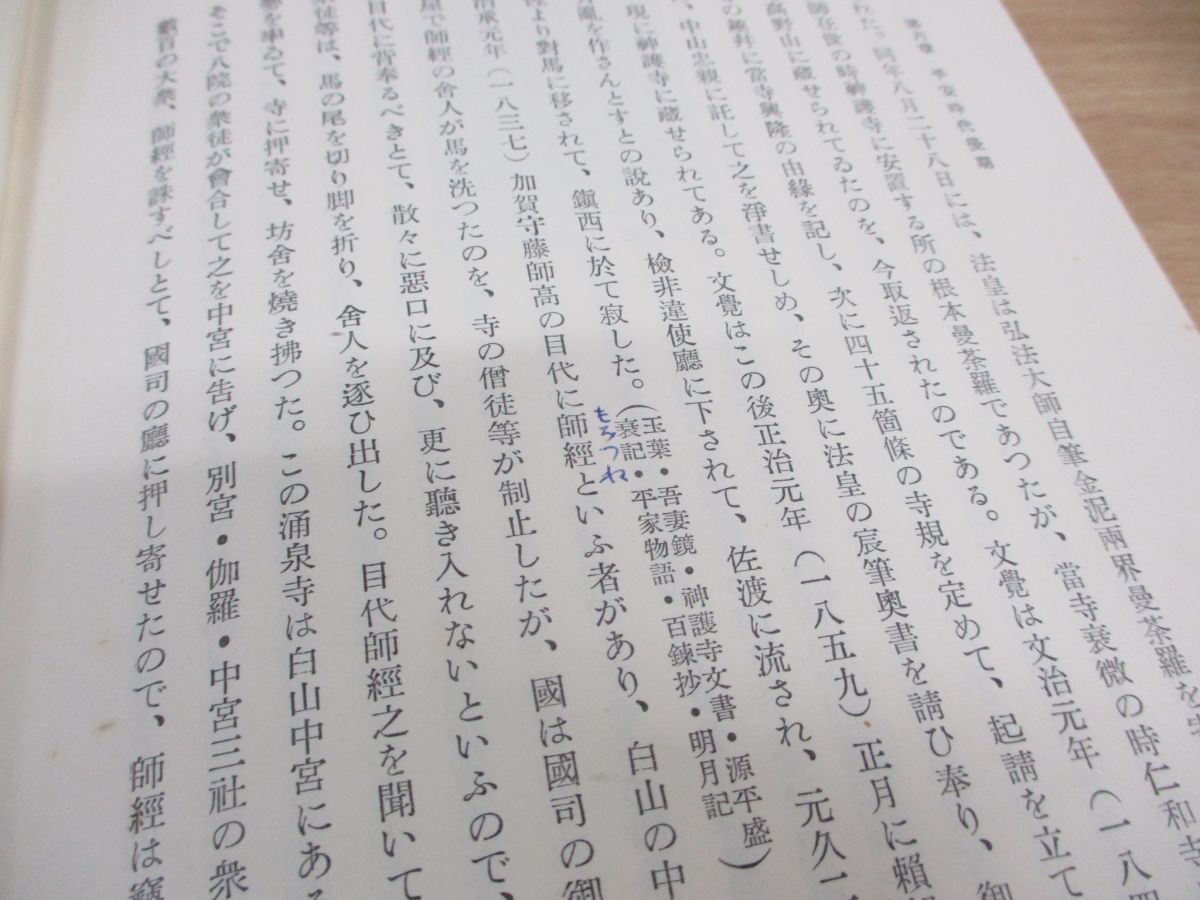 第六章 平安時代後期
れた。同年八月二十八日には、法皇は弘法大師自筆金泥兩界曼荼羅を
師在世の時神護寺に安置する所の根本曼荼羅であつたが、當寺衰微の時仁和寺
高野山に藏せられてゐたのを、今取返されたのである。文覺は文治元年(一八四
の趣并に當寺興隆の由緣を記し、次に四十五箇條の寺規を定めて、起請を立て
て、中山忠親に託して之を淨書せしめ、その奧に法皇の宸筆奧書を請ひ奉り、御
現に神護寺に藏せられてある。文覺はこの後正治元年(一八五九)正月に賴
亂を作さんとすとの說あり、檢非違使廳に下されて、佐渡に流され、元久二
より對馬に移されて、鎭西に於て寂した。(玉葉・吾妻鏡・神護寺文書・源平盛
衰記・平家物語・百鍊抄・明月記)
治承元年(一八三七)加賀守藤師高の目代に師經といふ者があり、白山の中
もろつね
屋で師經の舍人が馬を洗つたのを、寺の僧徒等が制止したが、國は國司の御
目代に背奉るべきとて、散々に惡口に及び、更に聽き入れないといふので、
衆徒等は、馬の尾を切り脚を折り、舍人を逐ひ出した。目代師經之を聞いて
勢を率ゐて、寺に押寄せ、坊舍を燒き拂つた。この涌泉寺は白山中宮にある
そこで八院の衆徒が會合して之を中宮に吿げ、別宮・伽羅・中宮三社の衆
數百の大衆、師經を誅すべしとて、國司の廳に押し寄せたので、師經は竊